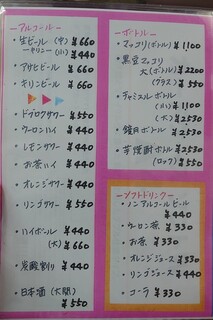 アルコール
・生ビール (中) ¥660
ーキリンー (小) ¥440
・アサヒビール ¥660
・キリンビール ¥660
・ドブロクサワー ¥550
・ウーロンハイ ¥440
・レモンサワー ¥440
・お茶ハイ ¥440
・オレンジサワー ¥440
・リンゴサワー ¥550
・ハイボール ¥440
(大) ¥660
・炭酸割り ¥440
・日本酒 (大関) ¥550
ボトル
・マッコリ(ボトル) ¥1,100
・黒豆マッコリ
大(ボトル) ¥2200
(グラス) ¥550
・チャミスルボトル
(小) ¥1100
(大) ¥2530
・鏡月ボトル ¥2530
・芋焼酎ボトル ¥2530
(ロック) ¥550
ソフトドリンク
・ノンアルコールビール
¥440
・ウーロン茶 ¥330
・お茶 ¥330
・オレンジジュース ¥330
・リンゴジュース ¥440
・コーラ ¥330